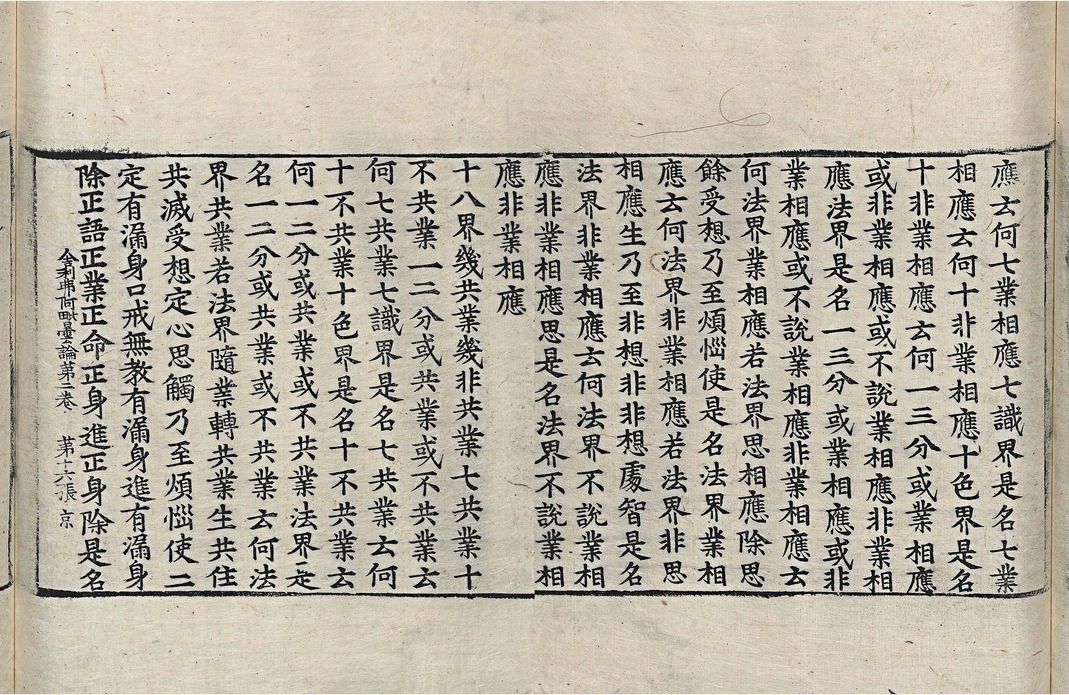 應云何七業相應七識界是名七業
相應云何十非業相應十色界是名
十非業相應云何一三分或業相應
或非業相應或不說業相應非業相
應法界是名一三分或業相應或非
業相應或不說業相應非業相應云
何法界業相應若法界思相應除思
餘受想乃至煩惱使是名法界業相
應云何法界非業相應若法界非思
相應生乃至非想非非想處智是名
法界非業相應云何法界不說業相
應非業相應思是名法界不說業相
應非業相應
十八界幾共業幾非共業七共業十
不共業一二分或共業或不共業云
何七共業七識界是名七共業云何
十不共業十色界是名十不共業云
何一二分或共業或不共業法界是
名一二分或共業或不共業云何法
界共業若法界隨業轉共業生共住
共滅受想定心思觸乃至煩惱使二
定有漏身口戒無教有漏身進有漏身
除正語正業正命正身進正身除是名
舍利弗阿毗曇論第二卷 第十六張 京